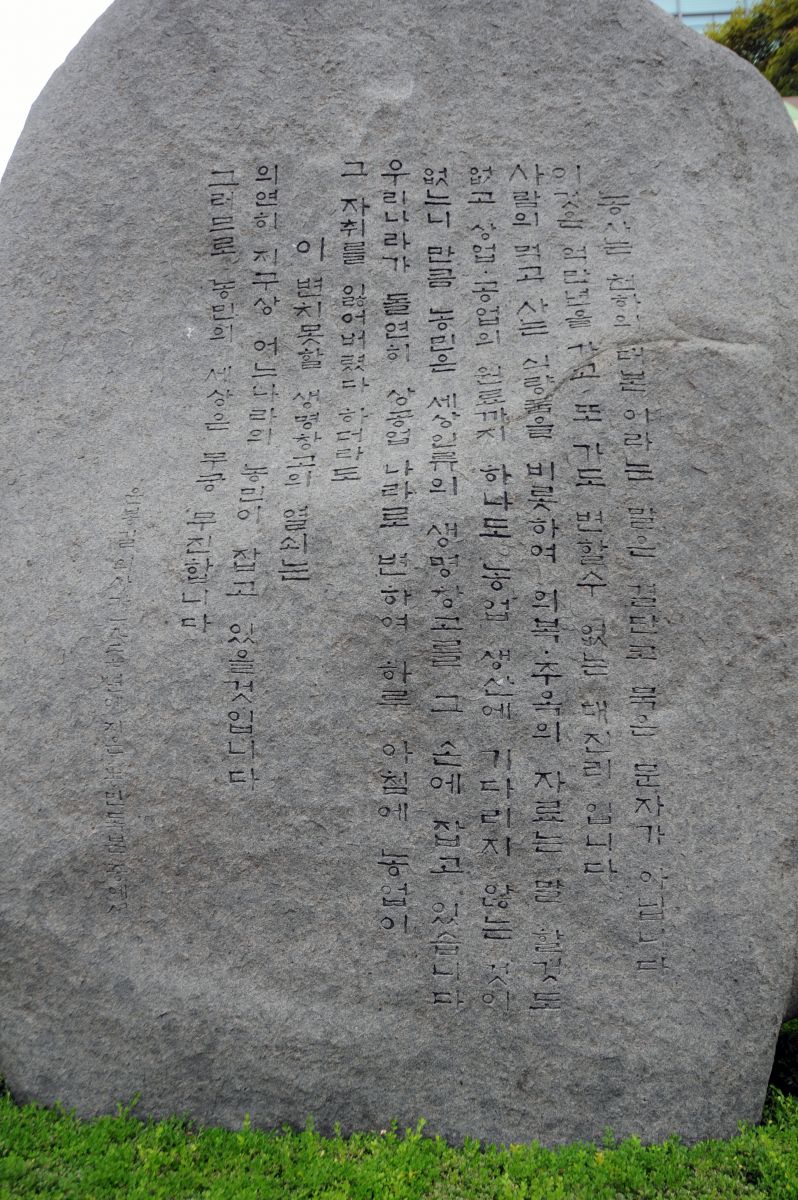 농사는 천하의 대본 이라는 말은 결단코 묵은 문자가 아닙니다
이것은 억만년을 가고 또 가도 변할수 없는 대진리 입니다
사람의 먹고 사는 식량품을 비롯하여 의복·주옥의 자료는 말 할것도
없고 상업·공업의 원료까지 하나도 농업 생산에 기다리지 않는 것이
없느니 만큼 농민은 세상인류의 생명창고를 그 손에 잡고 있습니다
우리나라가 돌연히 상공업 나라로 변하여 하루 아침에 농업이
그 자취를 잃어버렸다 하더라도
이 변치못할 생명창고의 열쇠는
의연히 지구상 어느나라의 농민이 잡고 있을것입니다
그러므로 농민의 세상은 무궁 무진합니다